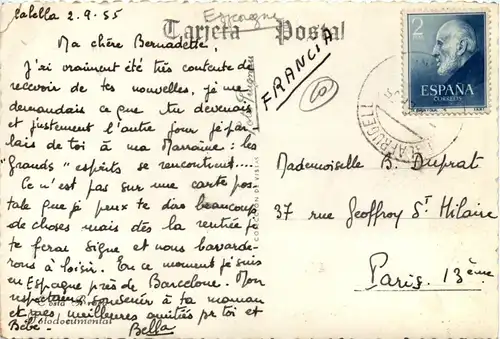 Calella 2.9.55
Espagne
Tarjeta Postal
FRANCIA
2
ESPAÑA
CORREOS
Ma chère Bernadette,
J'ai vraiment été très contente de
recevoir de tes nouvelles, je me
demandais ce que tu devenais
et justement l'autre jour je par
lais de toi à ma Marraine : les
"Grands" esprits se rencontrent....
Ce n'est pas sur une carte pos-
tale que je peux te dire beaucoup
de choses mais dès la rentrée je
te ferai signe et nous bavarde-
rons à loisir. En ce moment je suis
en Espagne près de Barcelone. Mon
souvenir à ta maman
et meilleures amitiés pr toi et
Bébé. Bella
Mademoiselle B. Duprat
37 rue Geoffroy St Hilaire
Paris. 13ème
Costa Brava
Fotodocumental